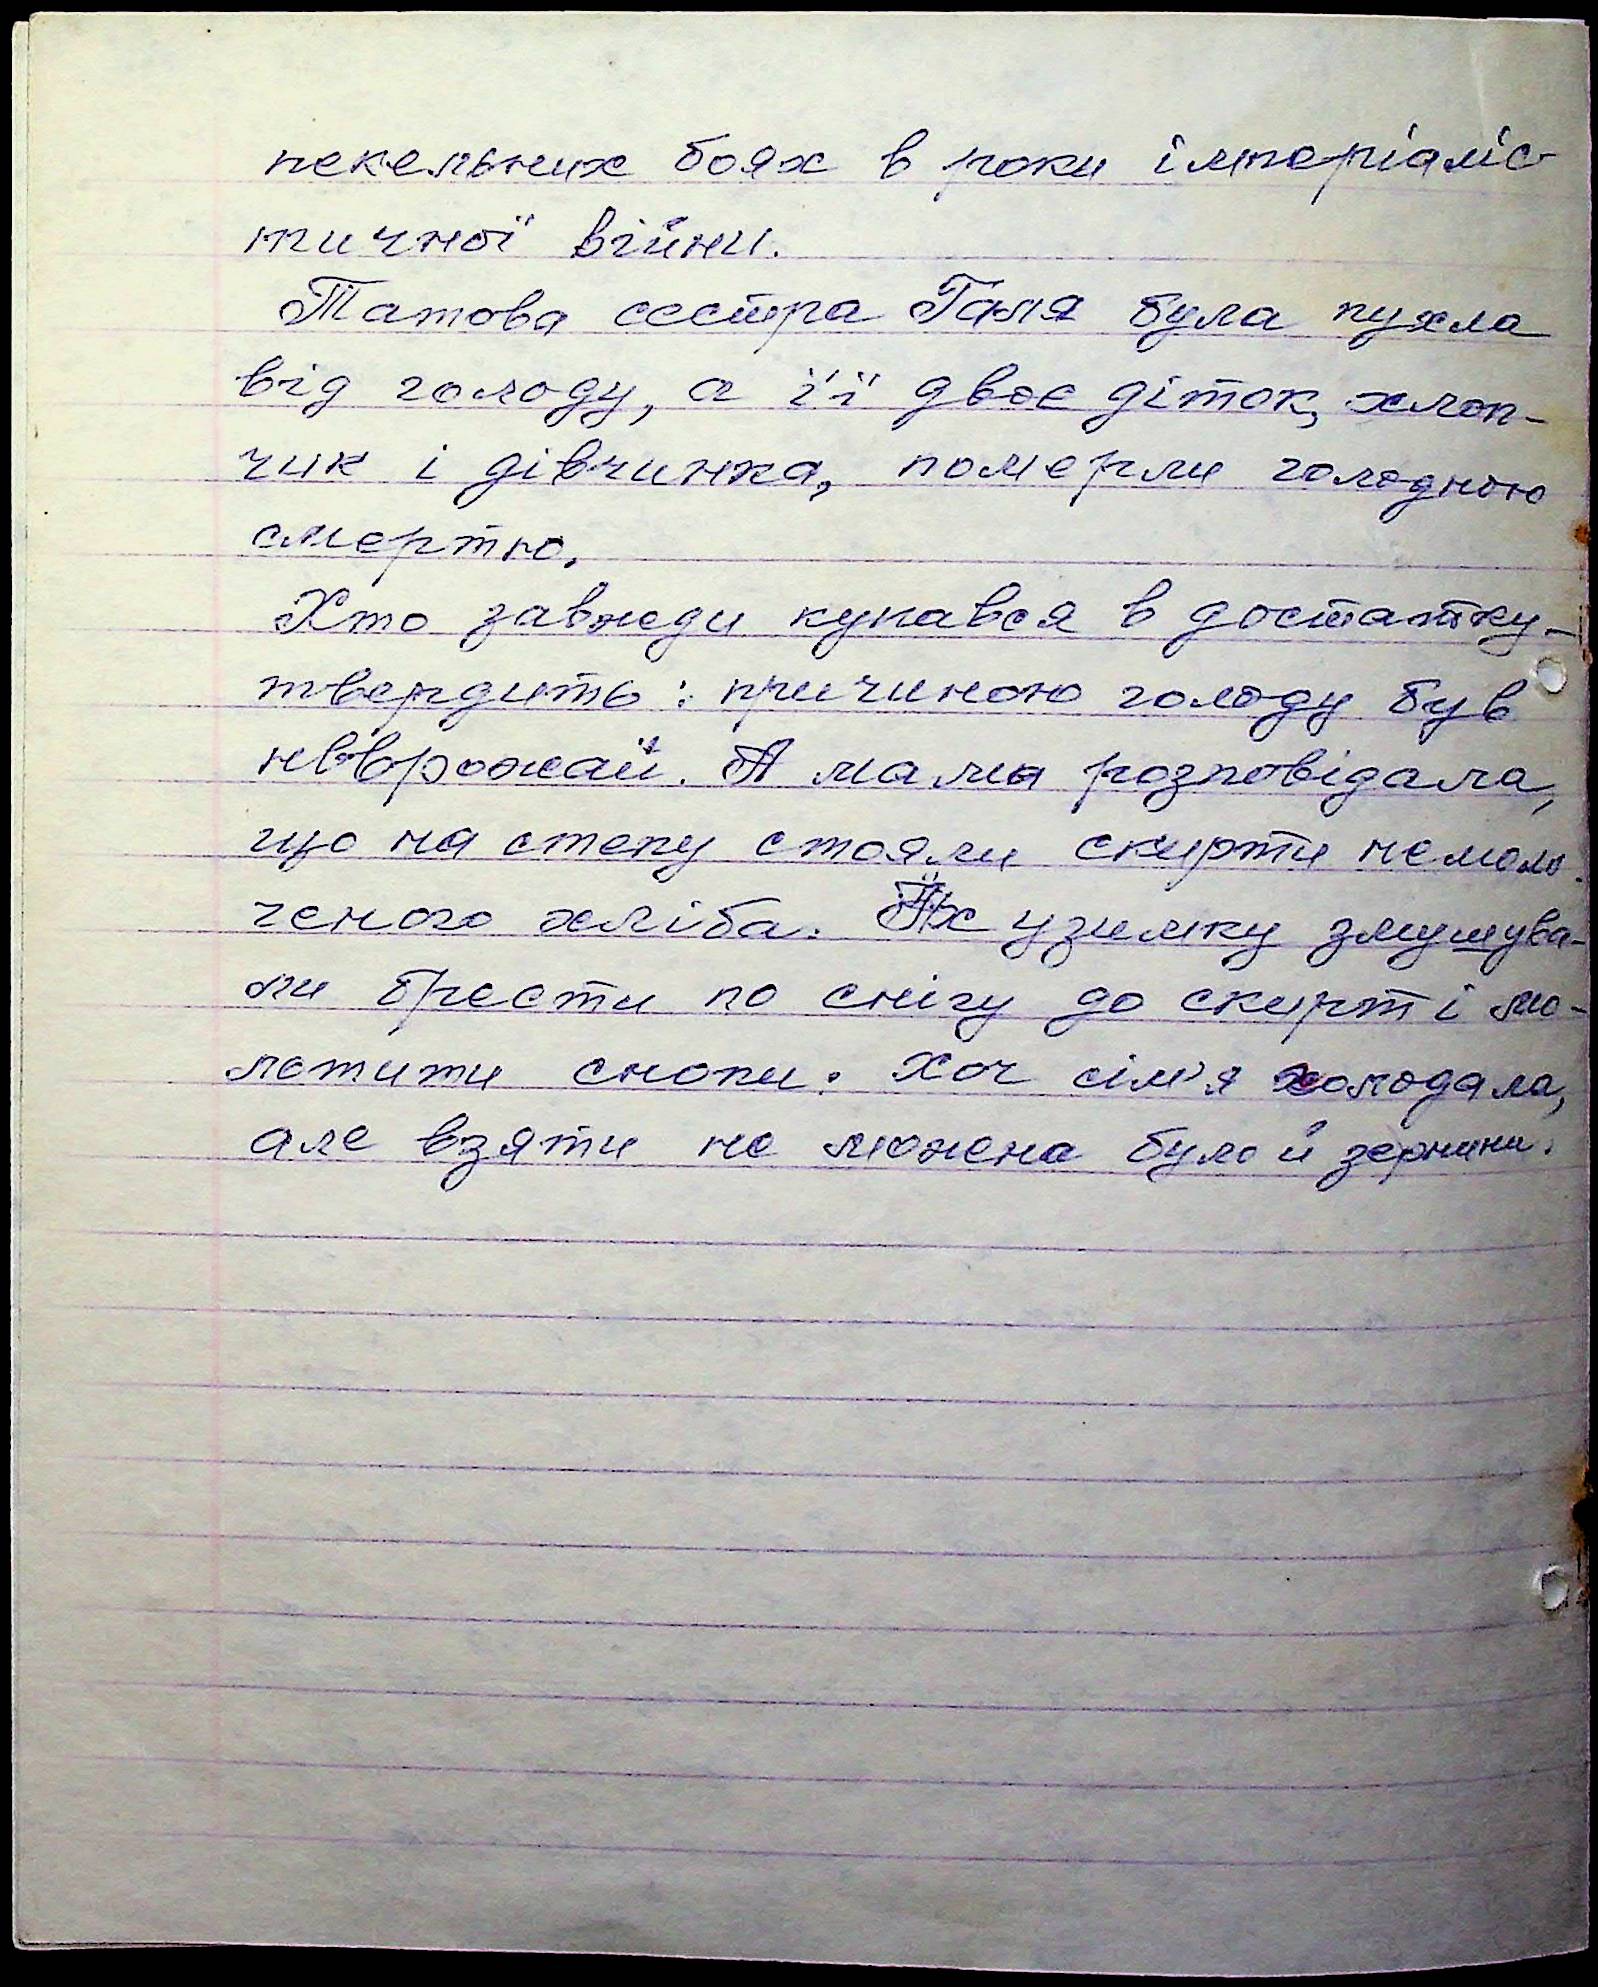 пекельних боях в роки імперіаліс-
тичної війни.
Татова сестра Галя була пухла
від голоду, а її двоє діток, хлоп-
чик і дівчинка, померли голодною
смертю.
Хто завжди купався в достатку -
твердить: причиною голоду був
неврожай. А мама розповідала,
що на степу стояли скирти немоло-
ченого хліба. Їх узимку змушува-
ли брести по снігу до скирт і мо-
лотити снопи. Хоч сім'я холодала,
але взяти не можна було й зернини.